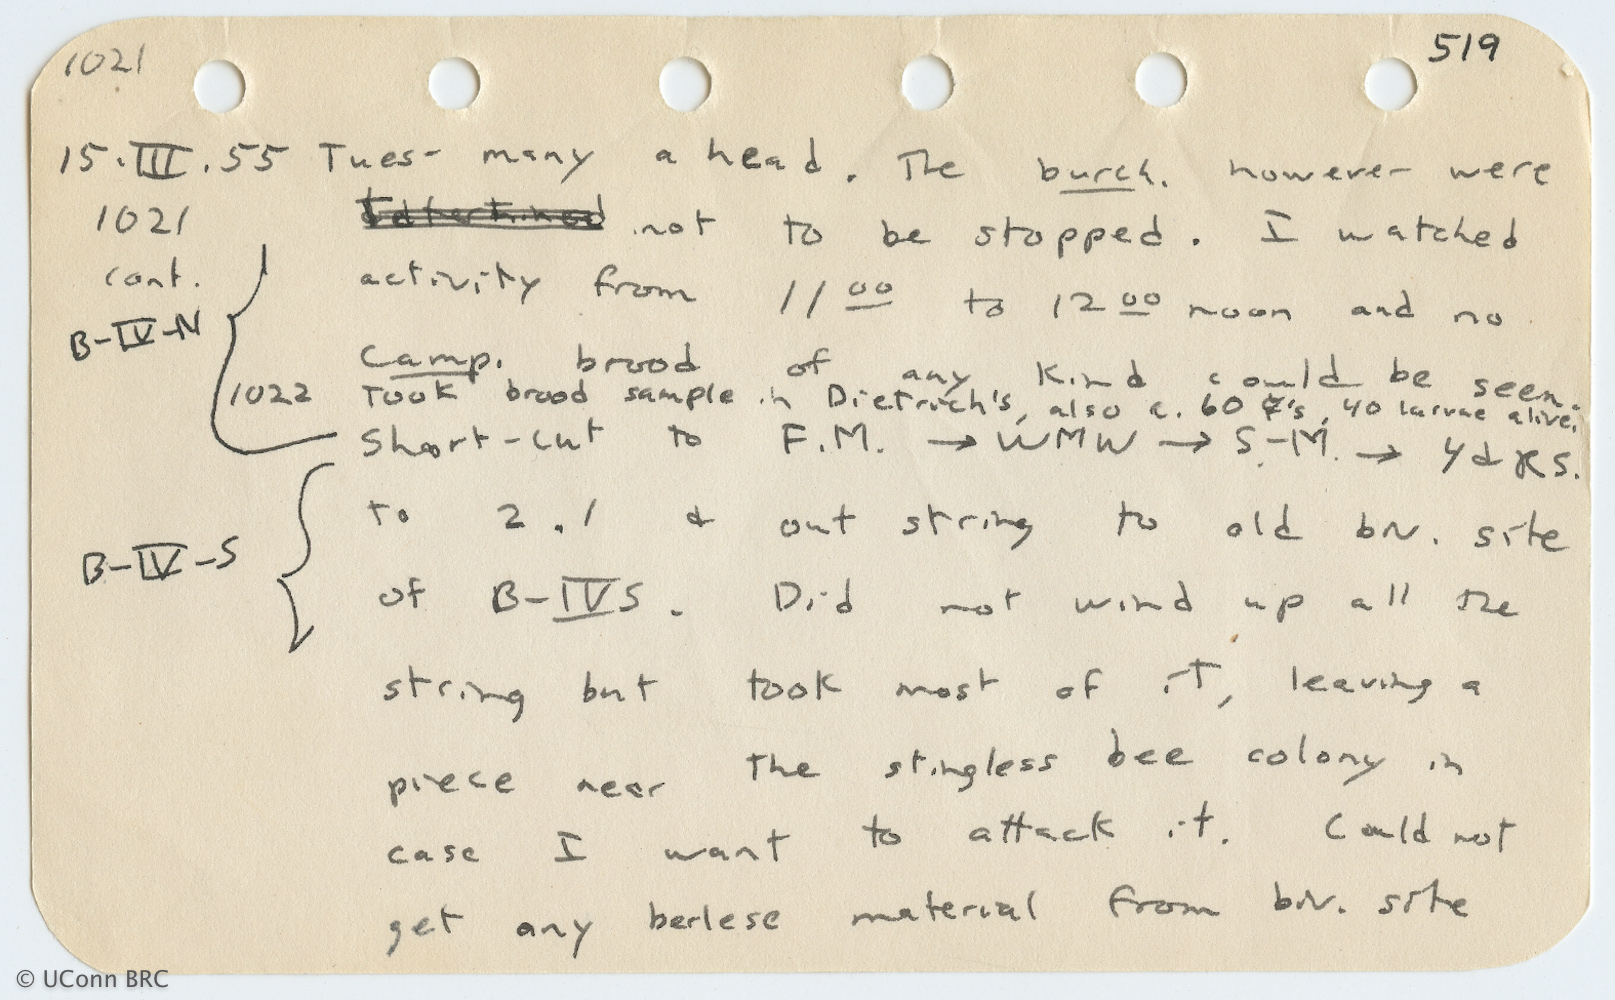 1021
519
15.III.55 Tues- many ahead. The burch. however were
1021 not to be stopped. I watched
cont. activity from 11 00 to 12 00 noon and no
B-IV-N
Camp. brood of any kind could be seen.
1022 Took brood sample in Dietrich's, also c. 60 ☿'s, 40 larvae alive.
Short-cut to F.M. → WMW → S-M. → yds.
to 2.1 & out string to old biv. site
B-IV-S
of B-IVS. Did not wind up all the
string but took most of it, leaving a
piece near the stingless bee colony in
case I want to attack it. Could not
get any berlese material from biv. site
© UConn BRC